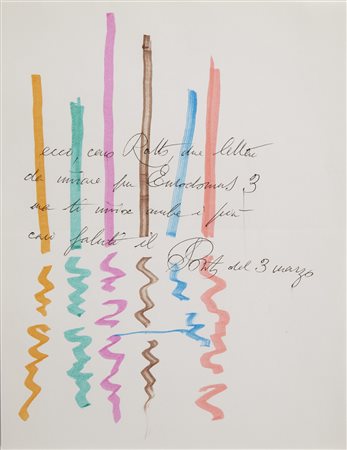 ecco, caro Ratto, due lettere
da inviare per Eurodomus 3
ma ti invio anche i piu
cari saluti il
Ponti del 3 marzo